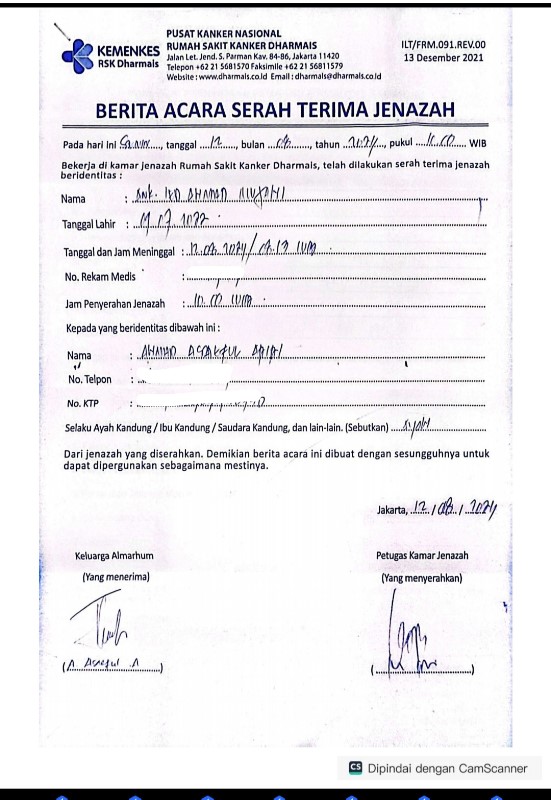 KEMENKES
RSK Dharmais
PUSAT KANKER NASIONAL
RUMAH SAKIT KANKER DHARMAIS
Jalan Let. Jend. S. Parman Kav. 84-86, Jakarta 11420
Telepon +62 21 5681570 Faksimile +62 21 56811579
Website : www.dharmais.co.id Email : dharmais@dharmais.co.id
ILT/FRM.091.REV.00
13 Desember 2021
BERITA ACARA SERAH TERIMA JENAZAH
Pada hari ini Senin, tanggal 12, bulan 08, tahun 2024, pukul 10.00 WIB
Bekerja di kamar jenazah Rumah Sakit Kanker Dharmais, telah dilakukan serah terima jenazah
beridentitas :
Nama : Ank. AHMAD
Tanggal Lahir : 07 2022
Tanggal dan Jam Meninggal : 12.08.2024/
No. Rekam Medis :
Jam Penyerahan Jenazah : 10.00 WIB
Kepada yang beridentitas dibawah ini :
Nama : AHMAD
No. Telpon :
No. KTP :
Selaku Ayah Kandung / Ibu Kandung / Saudara Kandung, dan lain-lain. (Sebutkan) Ayah
Dari jenazah yang diserahkan. Demikian berita acara ini dibuat dengan sesungguhnya untuk
dapat dipergunakan sebagaimana mestinya.
Jakarta, 12 / 08 / 2024
Keluarga Almarhum
(Yang menerima)
Petugas Kamar Jenazah
(Yang menyerahkan)
CS Dipindai dengan CamScanner